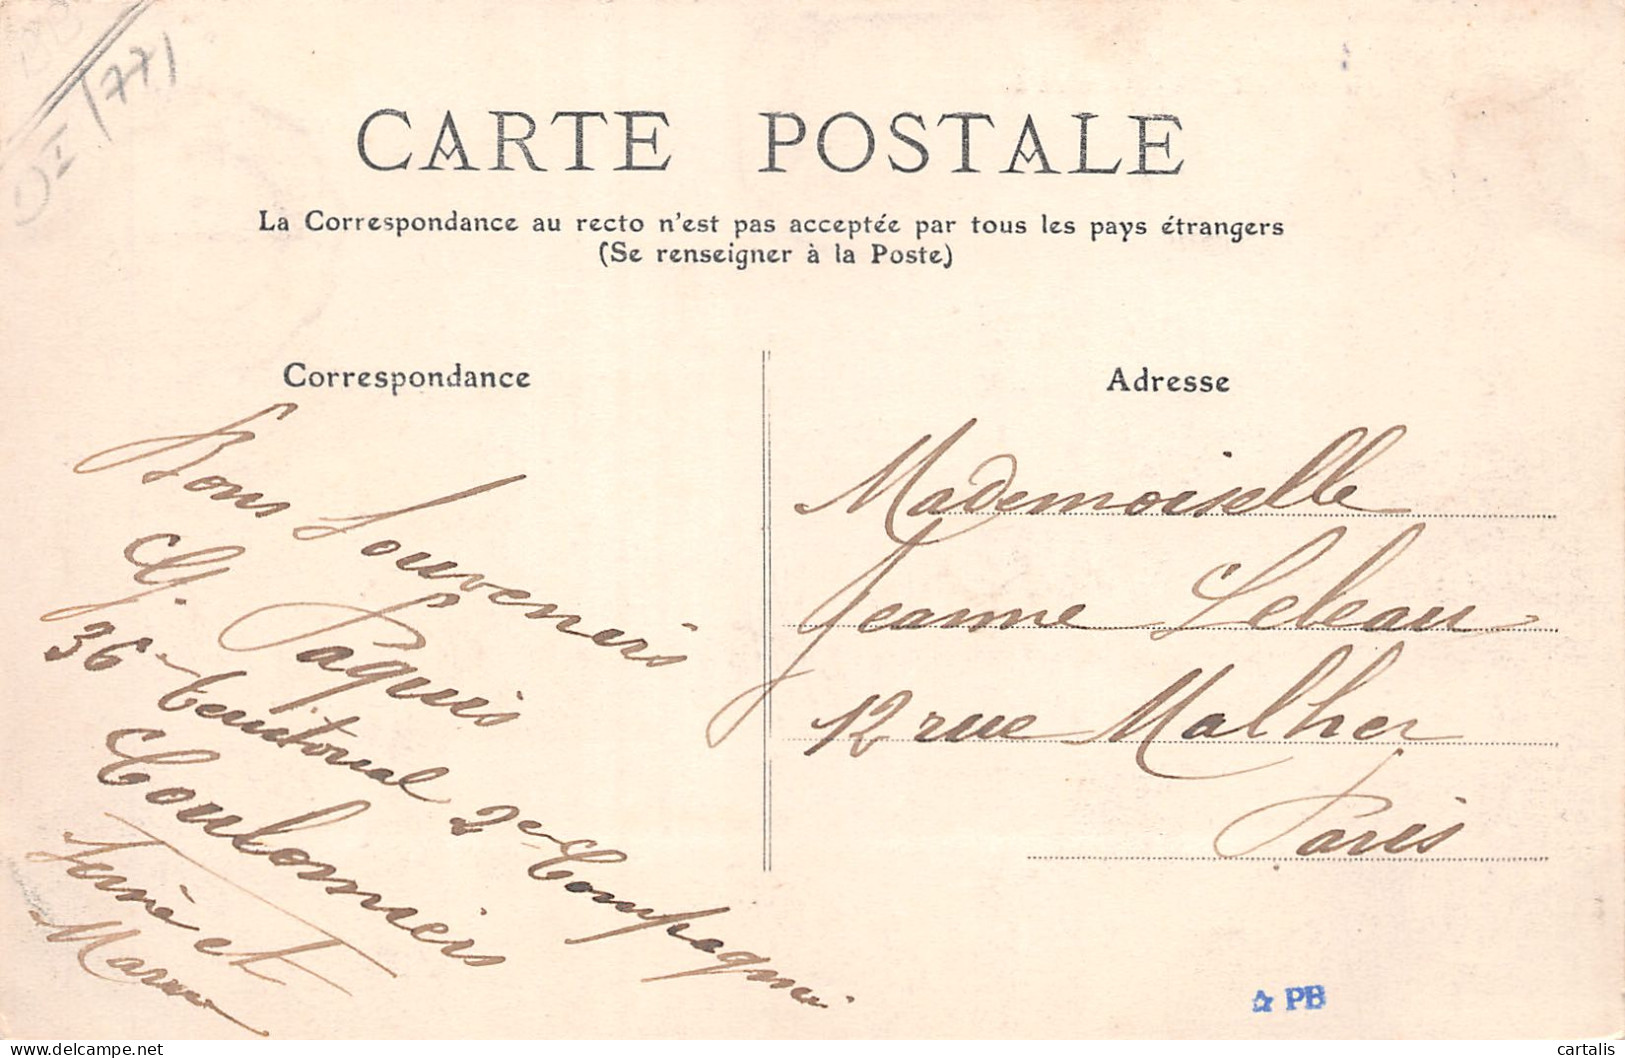 DI (77)
CARTE POSTALE
La Correspondance au recto n'est pas acceptée par tous les pays étrangers
(Se renseigner à la Poste)
Correspondance
Bons Souvenirs
G. Paquis
36e territorial 2e Compagnie
Coulomiers
Seine et
Marne
Adresse
Mademoiselle
Jeanne Lebeau
12 rue Malher
Paris
☆ PB
cartalis
delcampe.net